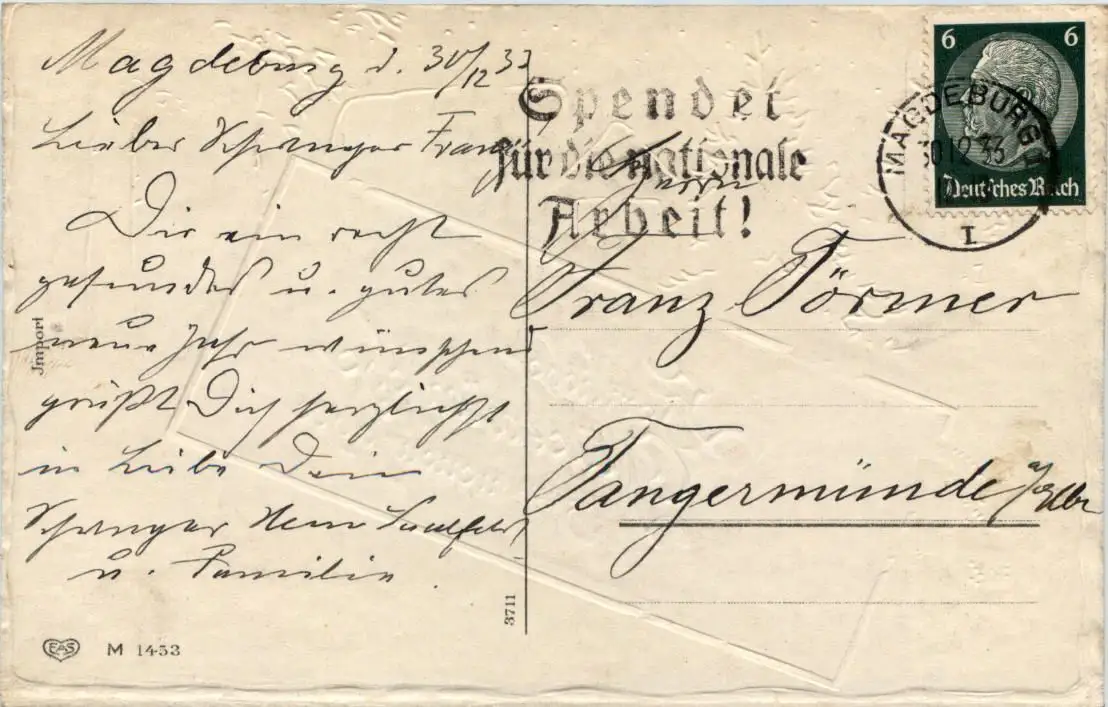 Magdeburg d. 30/12 33
Lieber Schwager Franz,
Dir ein recht
gesundes u. gutes
neues Jahr wünschend
grüßt Dich herzlichst
in Liebe Dein
Schwager
u. Familie.
Jmport
EAS
M 1453
3711
Spendet
für die nationale
Arbeit!
6 6
Deutsches Reich
MAGDEBURG
30.12.33
1
Herrn
Franz Törmer
Tangermünde a/Elbe